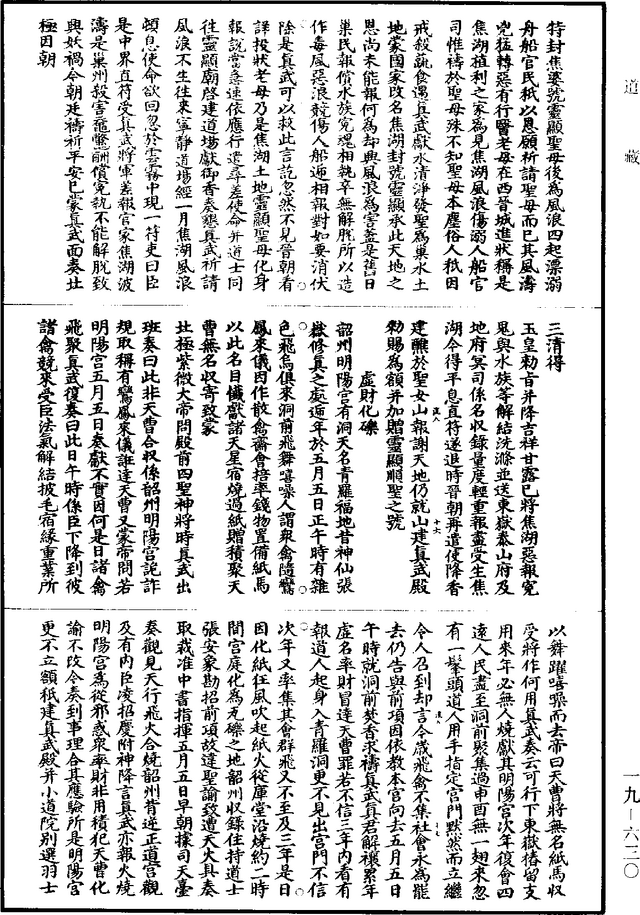 道藏
特封焦婆號靈顯聖母後為風浪四起漂溺
舟船官民秖以恩願祈請聖母而已其風濤
兇猛轉惡有行醫老母在西晉城進狀稱是
焦湖植利之家為見焦湖風浪傷溺人船官
司惟禱於聖母殊不知聖母本塵俗人秖因
戒殺執食遇真武獻水清淨發聖為巢水土
地蒙國家改名焦湖封號靈顯承此天地之
恩尚未能報何為却興風浪為害蓋是舊日
巢民報償水族冤魂相執卒無解脫所以造
作毒風惡浪競傷人船遞相報對如要消伏
除是真武可以救此言訖忽然不見晉朝看
詳投狀老母乃是焦湖土地靈顯聖母化身
報說當急速依應行遣尋差使命并道士同
往靈顯廟啓建道場獻御香奏懇真武祈請
風浪不生往來寧靜道場經一月焦湖風浪
頓息使命欲回忽於雲霧中現一符吏曰臣
是中界直符受真武將軍差報官家焦湖波
濤是巢州殺害黿鼈酬償冤執不能解脫致
興妖禍今朝廷禱祈平安已蒙真武面奏北
極因朝
三清得
玉皇勑旨并降吉祥甘露已將焦湖惡報冤
鬼與水族等解結洗滌並送東嶽泰山府及
地府冥司係名收錄量度輕重報盡受生焦
湖今得平息直符遂退時晉朝再遣使降香
建醮於聖女山報謝天地仍就山建真武殿
勑賜為額并加贈靈顯順聖之號
虛財化礫
韶州明陽宮有洞天名青羅福地昔神仙張
嶽修真之處遞年於五月五日正午時有雜
色飛鳥俱來洞前飛舞嘻噪人謂衆禽隨鸞
鳳來儀因作散禽齋會捨率錢物置備紙馬
以此名目懺獻諸天星宿燒過紙贈積聚天
曹無名收寄致蒙
北極紫微大帝問殿前四聖神將時真武出
班奏曰此非天曹合收係韶州明陽宮詭詐
規取稱有鸞鳳來儀誑達天曹又蒙帝問若
明陽宮五月五日奏獻不實因何是日諸禽
飛聚真武復奏曰此日午時係臣下降到彼
諸禽競來受臣法氣解結披毛宿緣重業所
以舞躍嘻噪而去帝曰天曹將無名紙馬收
受將作何用真武奏云可行下東嶽椿留支
用來年必無人燒獻其明陽宮次年復會四
遠人民盡至洞前聚集過申酉無一翅來忽
有一髼頭道人用手指定宮門默然而立繼
令人召到却言今歲飛禽不集社會永為罷
去仍告與前項因依教本宮向去五月五日
午時就洞前焚香求禱真武真君解禳累年
虛名率財冒達天曹罪若不信三年內看有
報道人起身入青羅洞更不見出宮門不信
次年又率集其會群飛又不至及三年是日
因化紙狂風吹起紙火從庫堂沿燒約二時
間宮庭化為瓦礫之地韶州收錄住持道士
張安象勘招前項故違聖諭致遭天火具奏
取裁准中書指揮五月五日早朝據司天臺
奏觀見天行飛火合燒韶州背逆正道宮觀
及有內臣凌招慶附神降言真武亦報火燒
明陽宮為從邪惑衆率財非用積犯天曹化
諭不改今奏到事理合其應驗所是明陽宮
更不立額秖建真武殿并小道院別選羽士
一九—六三〇